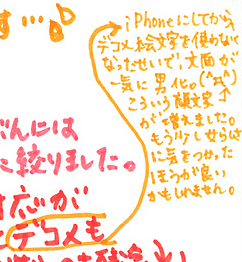 す…♪
iPhoneにしてから、
デコメ絵文字を使わなく
なったせいで文面が
一気に男化。
こういう顔文字↑
が増えました。
もう少し女らしさ
に気をつかった
ほうが良い
かもしれません。
ぶんには
に絞りました。
応が
デコメも